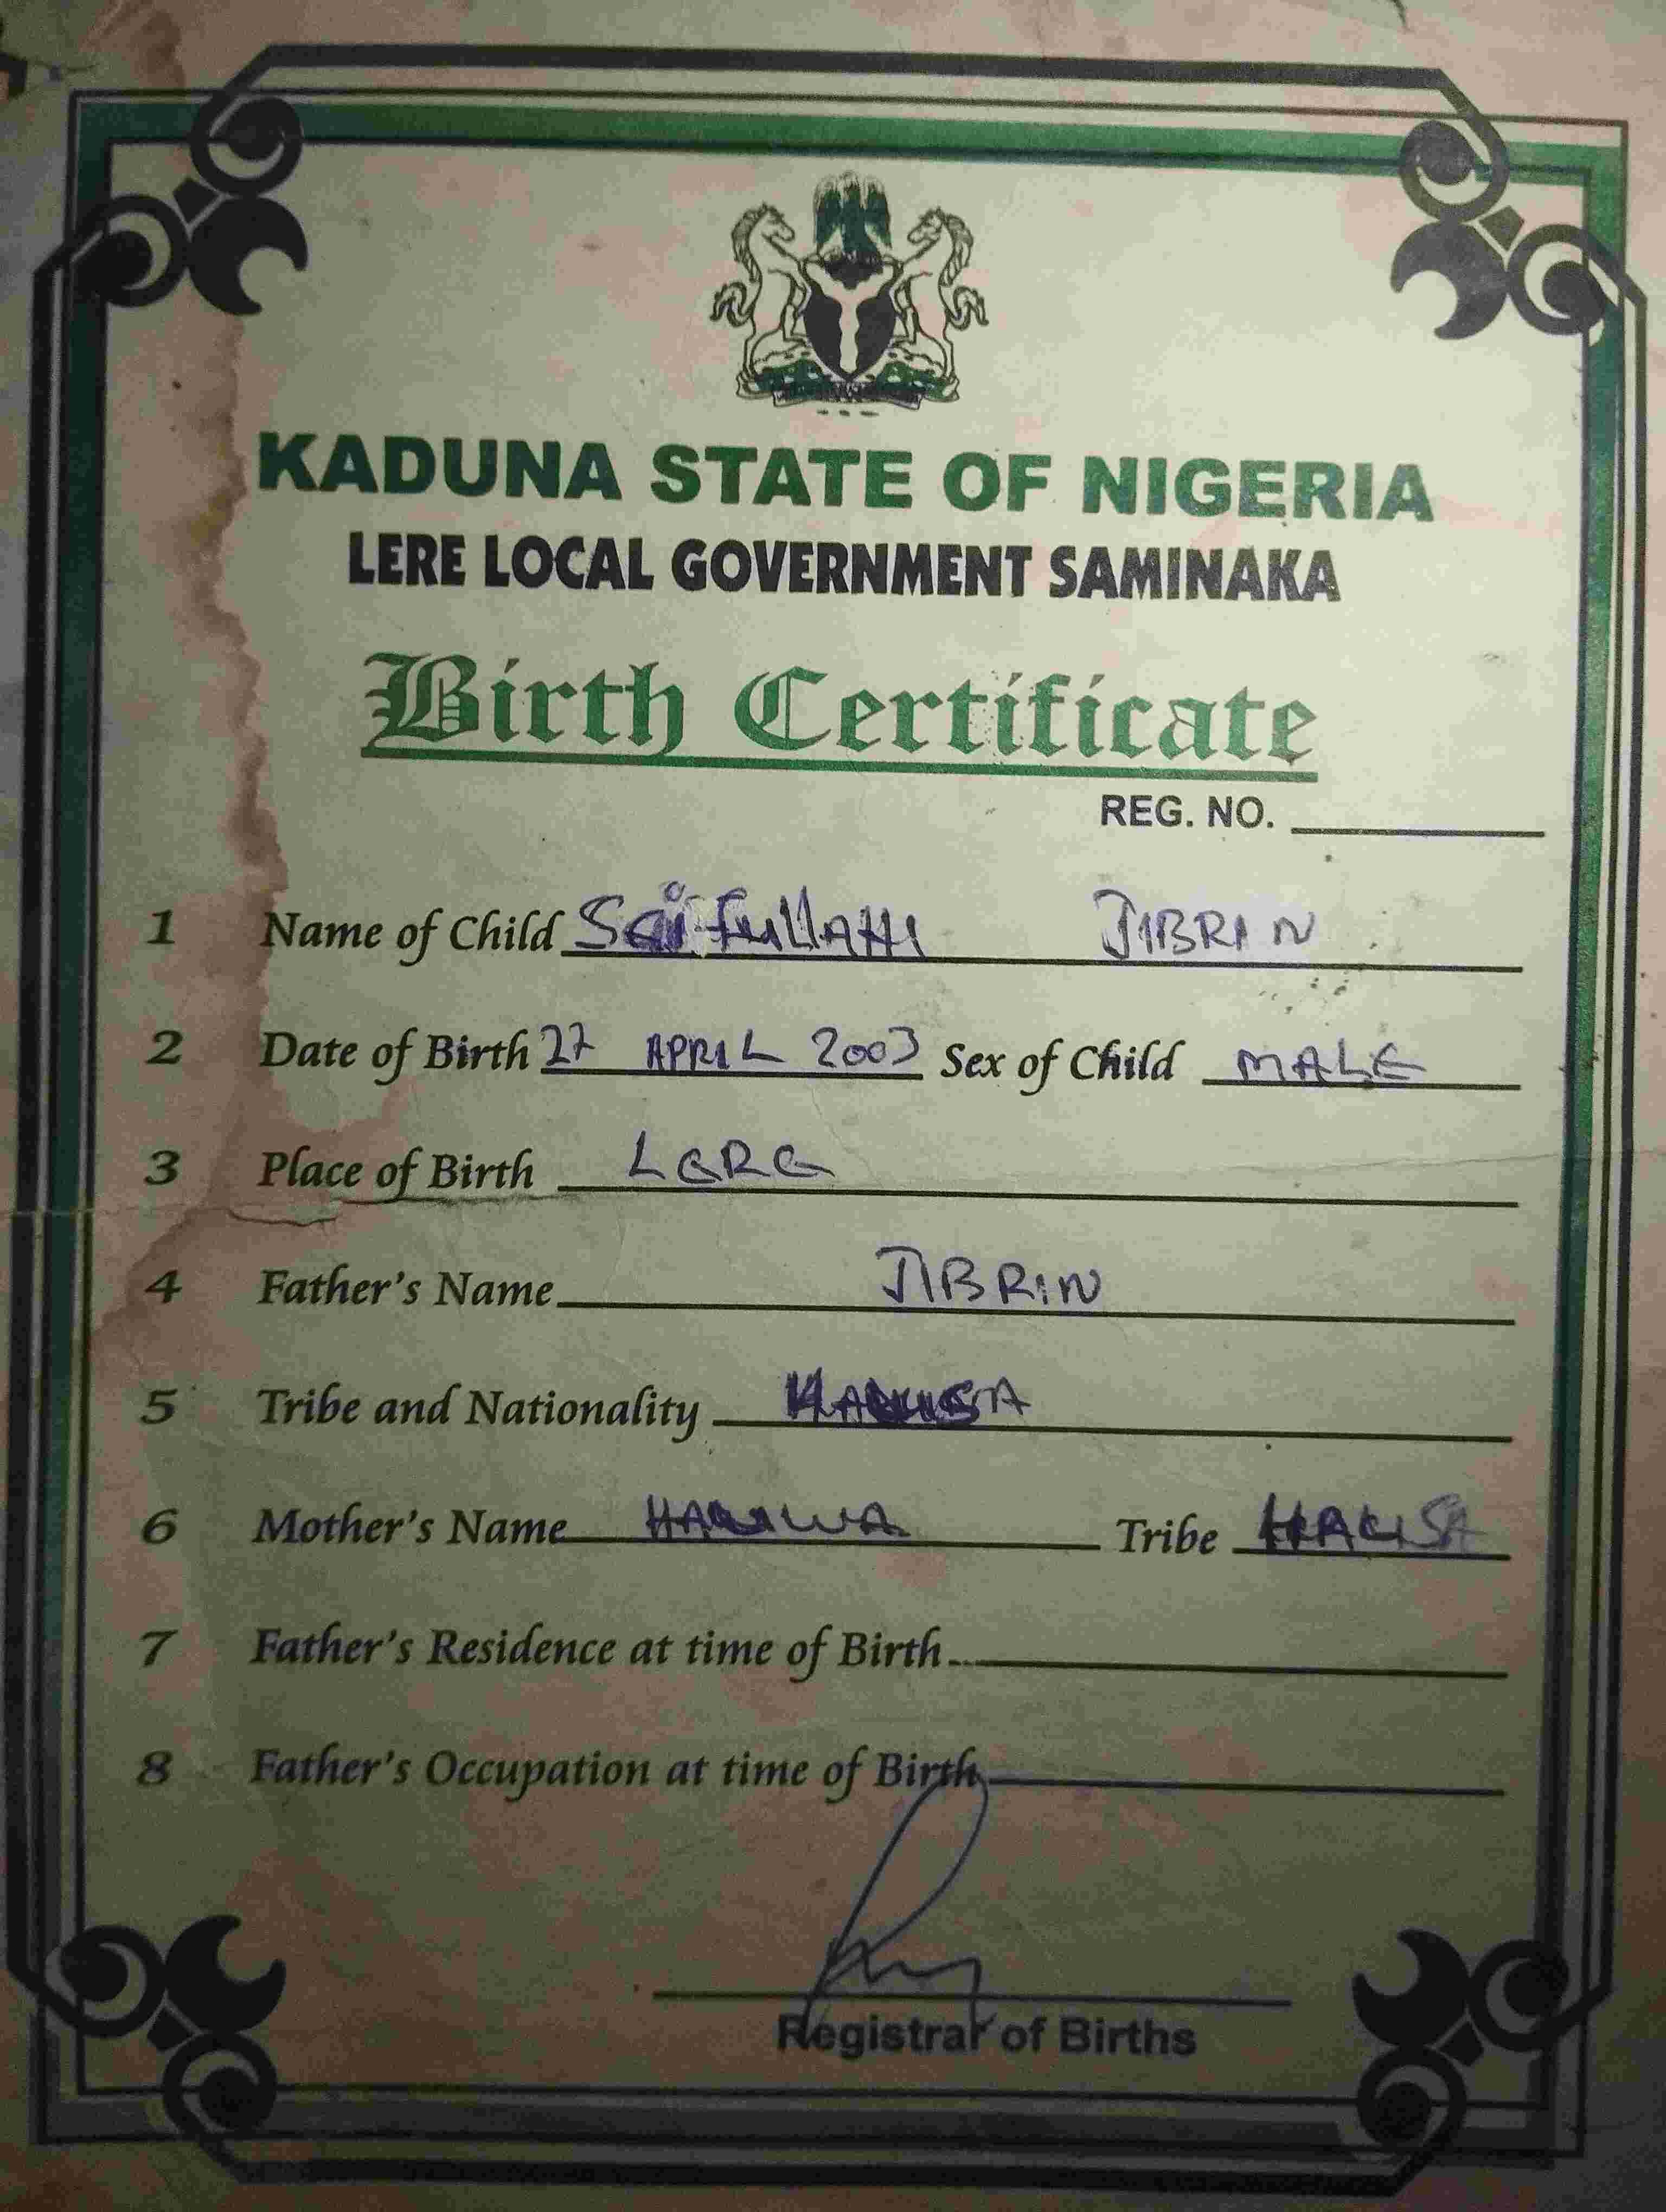 KADUNA STATE OF NIGERIA
LERE LOCAL GOVERNMENT SAMINAKA
Birth Certificate
REG. NO.
1 Name of Child Saifullahi JIBRIN
2 Date of Birth 27 APRIL 2003 Sex of Child MALE
3 Place of Birth LERE
4 Father's Name JIBRIN
5 Tribe and Nationality HAUSA
6 Mother's Name Tribe HAUSA
7 Father's Residence at time of Birth
8 Father's Occupation at time of Birth
Registrar of Births